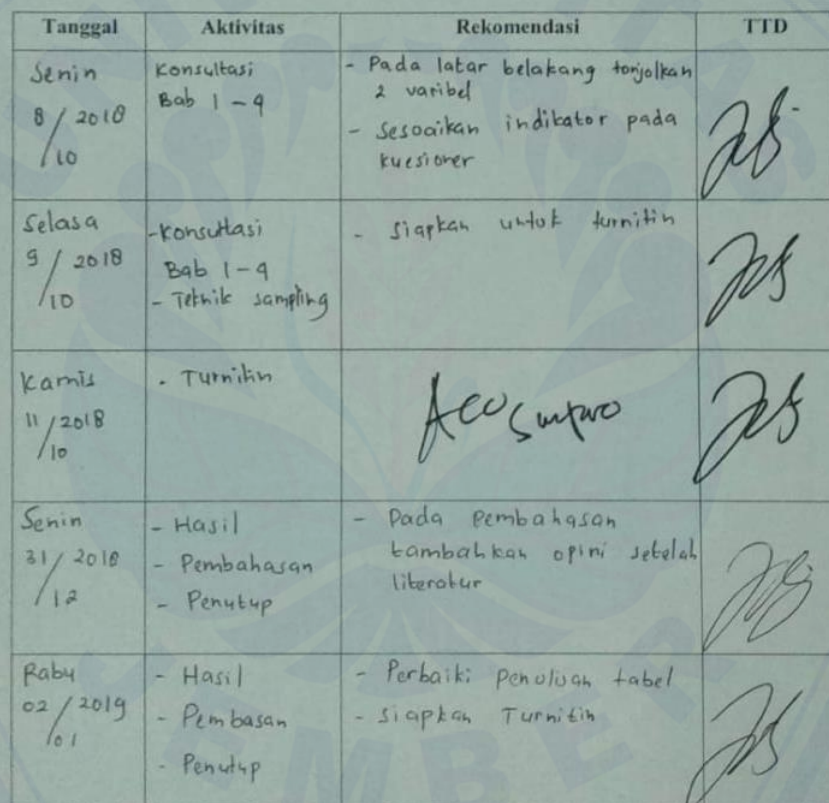 Tanggal Aktivitas Rekomendasi TTD
Senin
8/10 2018
Konsultasi
Bab 1-4
- Pada latar belakang tonjolkan
2 varibel
- Sesoaikan indikator pada
kuesioner
Selasa
9/10 2018
- Konsultasi
Bab 1-4
- Teknik sampling
- Siapkan untuk turnitin
Kamis
11/10 2018
- Turnitin
Acc
Senin
31/12 2018
- Hasil
- Pembahasan
- Penutup
- Pada Pembahasan
tambahkan opini setelah
literatur
Rabu
02/01 2019
- Hasil
- Pembasan
- Penutup
- Perbaiki penulisan tabel
- Siapkan Turnitin
JEMBER